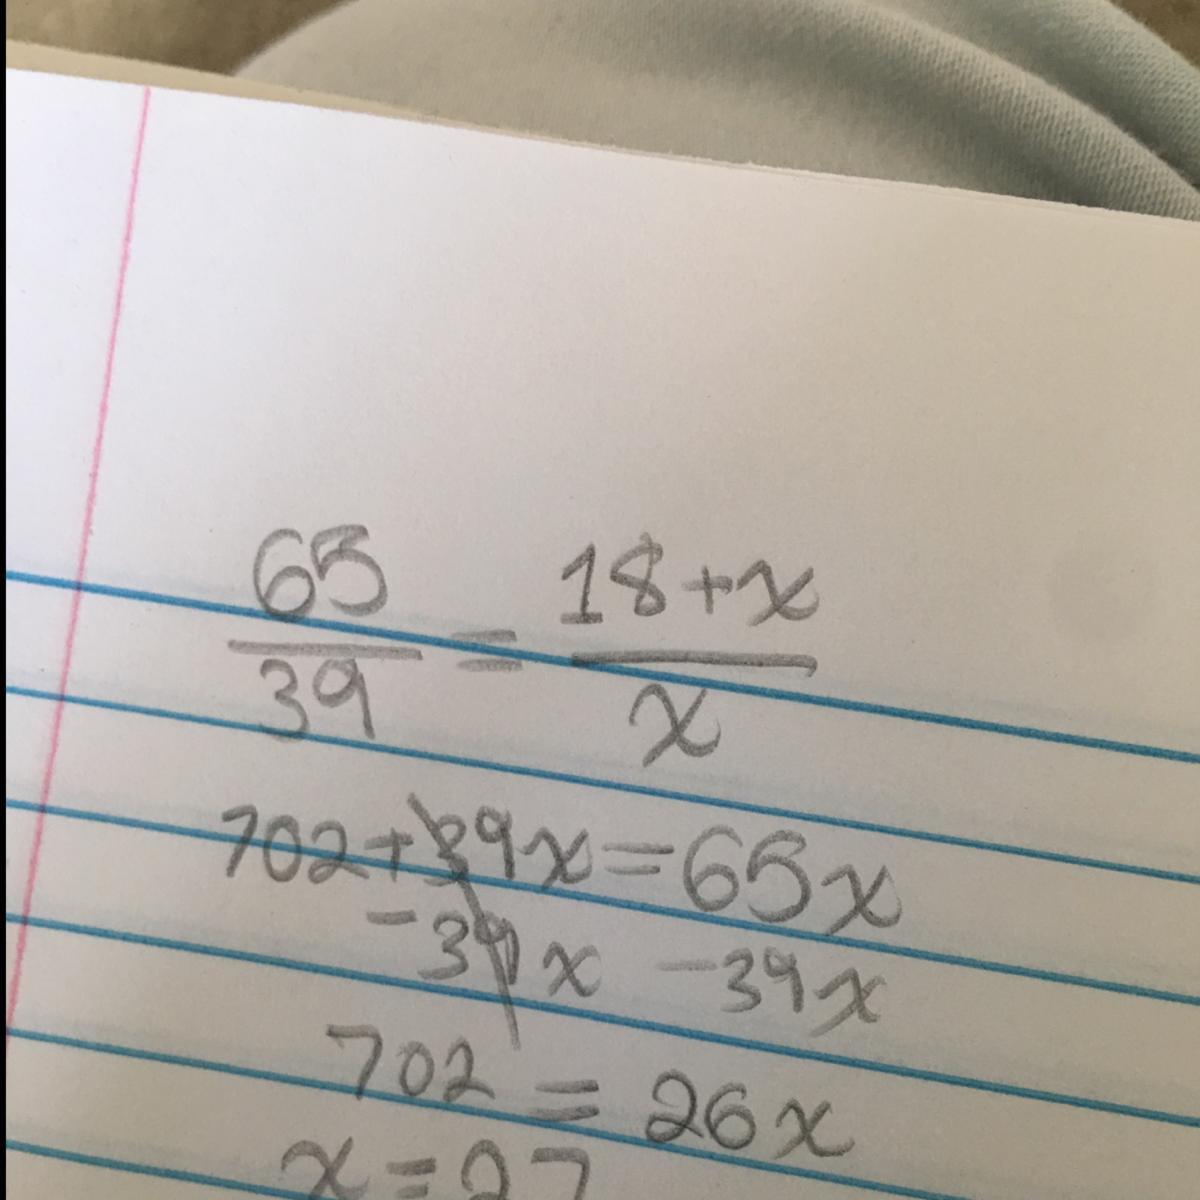 65/39 = 18+x/x
702+39x=65x
-39x -39x
702 = 26x
x=27